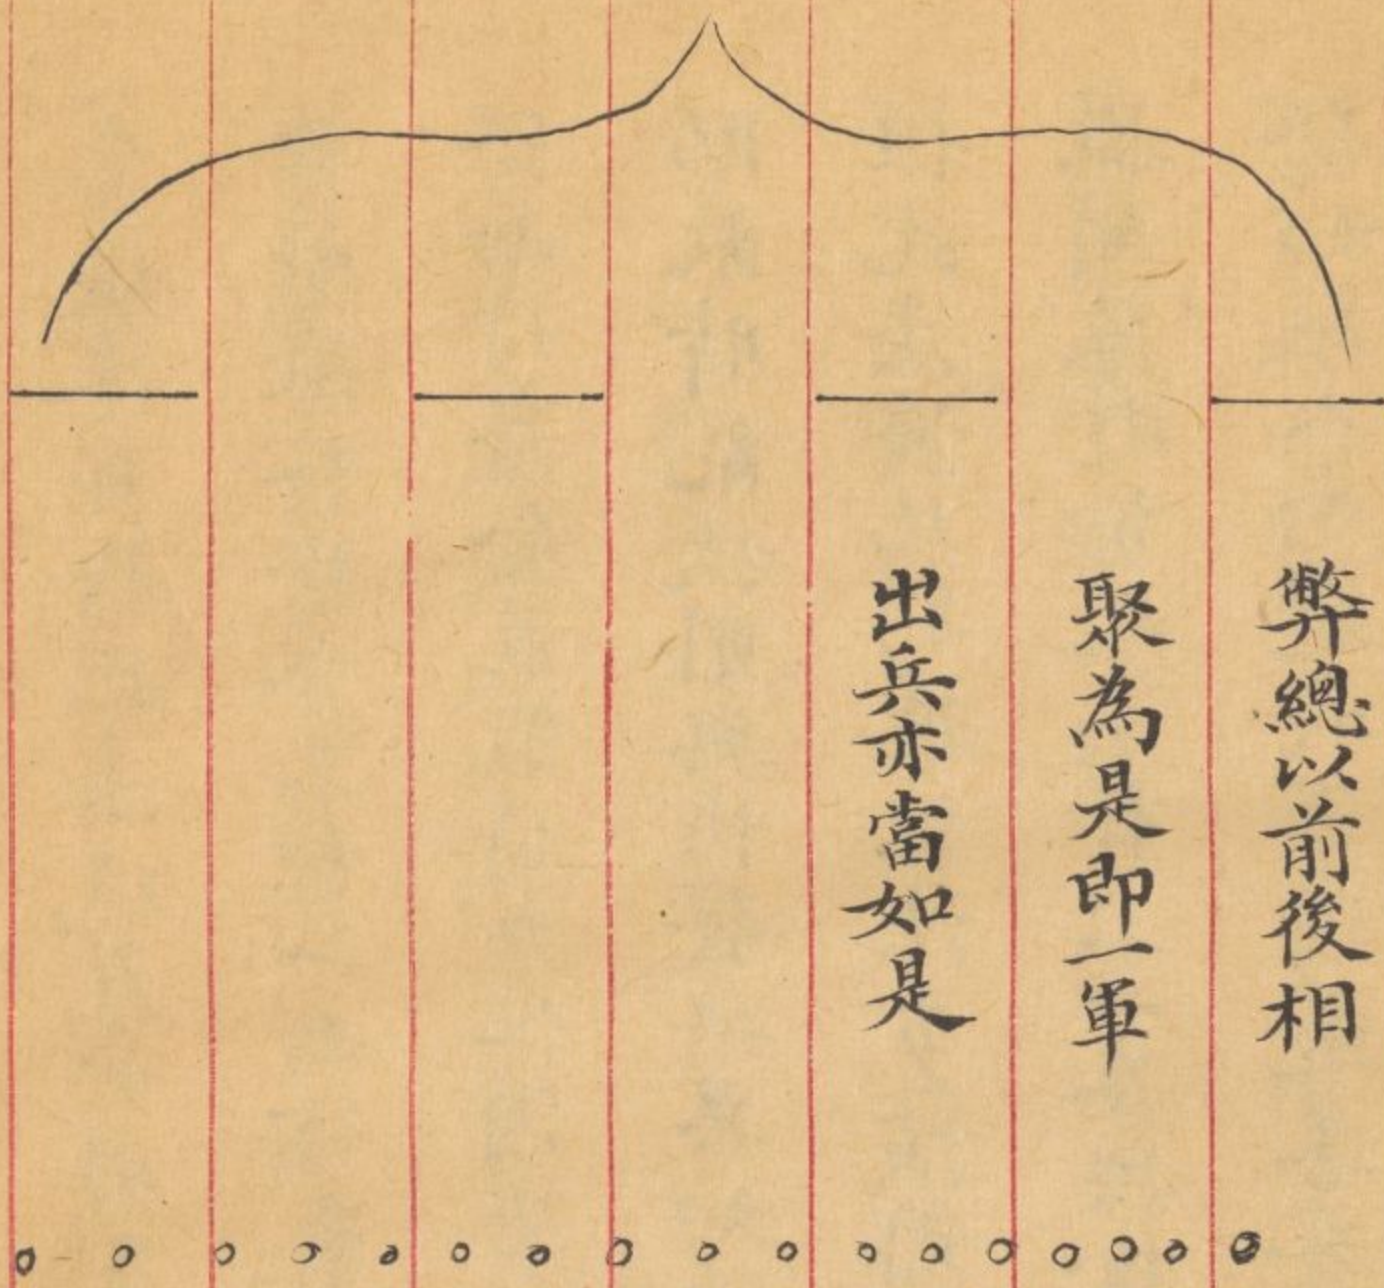 弊總以前後相
聚為是即一軍
出兵亦當如是